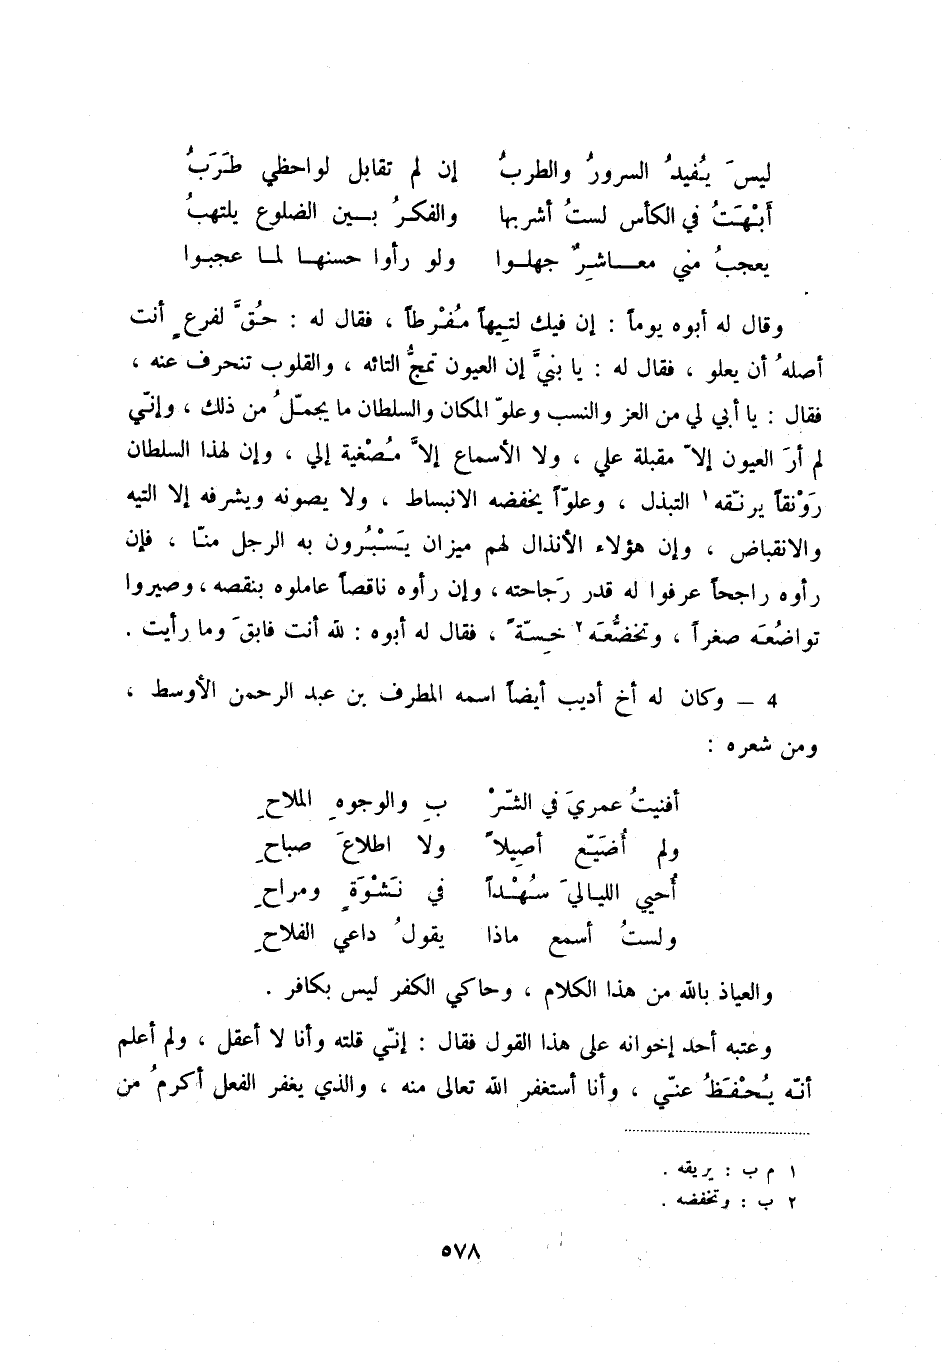 ليسَ يُفيدُ السرورُ والطربُ إن لم تقابل لواحظي طَرَبُ
أَبْهَتُ في الكأس لستُ أشربها والفكرُ بين الضلوع يلتهبُ
يعجبُ مني معاشرٌ جهلوا ولو رأوا حسنها لما عجبوا
وقال له أبوه يوماً : إن فيك لتيهاً مُفْرطاً ، فقال له : حُقَّ لفرعٍ أنت
أصلهُ أن يعلو ، فقال له : يا بنيَّ إن العيون تمجُّ التائه ، والقلوب تنحرف عنه ،
فقال : يا أبي لي من العز والنسب وعلوّ المكان والسلطان ما يجملُ من ذلك ، وإنّي
لم أرَ العيون إلاّ مقبلة علي ، ولا الأسماع إلاَّ مُصْغية إلي ، وإن لهذا السلطان
رَوْنقاً يرنّقه١ التبذل ، وعلوّاً يخفضه الانبساط ، ولا يصونه ويشرفه إلا التيه
والانقباض ، وإن هؤلاء الأنذال لهم ميزان يَسْبُرون به الرجل منّا ، فإن
رأوه راجحاً عرفوا له قدر رَجاحته ، وإن رأوه ناقصاً عاملوه بنقصه ، وصيروا
تواضُعَه صغراً ، وتخضُّعَه٢ خِسّةً ، فقال له أبوه : لله أنت فابقَ وما رأيت .
4 – وكان له أخ أديب أيضاً اسمه المطرف بن عبد الرحمن الأوسط ،
ومن شعره :
أفنيتُ عمريَ في الشّرْ بِ والوجوهِ الملاحِ
ولم أُضَيّع أصِيلاً ولا اطلاعَ صباحِ
أُحيي اللياليَ سُهْداً في نَشْوَةٍ ومراحِ
ولستُ أسمع ماذا يقولُ داعي الفلاحِ
والعياذ بالله من هذا الكلام ، وحاكي الكفر ليس بكافر .
وعتبه أحد إخوانه على هذا القول فقال : إنّي قلته وأنا لا أعقل ، ولم أعلم
أنّه يُحْفَظُ عنّي ، وأنا أستغفر الله تعالى منه ، والذي يغفر الفعل أكرمُ من
١ م ب : يريقه .
٢ ب : وتخفضه .
٥٧٨